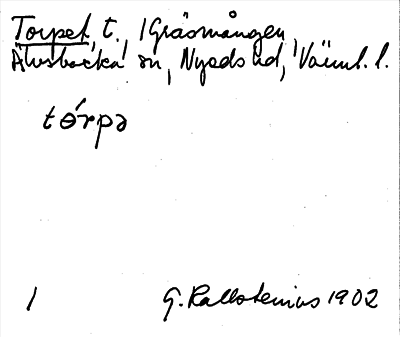 Torpet, t., Gräsmången,
Älvsbacka sn, Nyeds hd, Värml. l.
tɵ́rpə
1 G. Kallstenius 1902